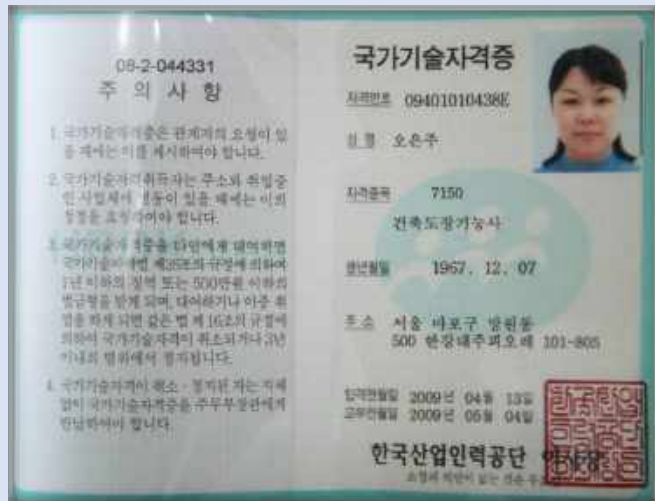 08-2-044331
주 의 사 항
1. 국가기술자격증은 관계자의 요청이 있
을 때에는 이를 제시하여야 합니다.
2. 국가기술자격취득자는 주소와 취업중
인 사업체에 변동이 있을 때에는 이의
정정을 요청하여야 합니다.
3. 국가기술자격증을 타인에게 대여하면
국가기술자격법 제26조의 규정에 의하여
1년 이하의 징역 또는 500만원 이하의
벌금형을 받게 되며, 대여하거나 이중 취
업을 하게 되면 같은 법 제16조의 규정에
의하여 국가기술자격이 취소되거나 3년
이내의 범위에서 정지됩니다.
4. 국가기술자격이 취소·정지된 자는 지체
없이 국가기술자격증을 주무부장관에게
반납하여야 합니다.
국가기술자격증
자격번호 09401010438E
성 명 오은주
자격종목 7150
건축도장기능사
생년월일 1967. 12. 07
주 소 서울 마포구 망원동
500 한강대주피오레 101-805
합격연월일 2009년 04월 13일
교부연월일 2009년 05월 04일
한국산업인력공단